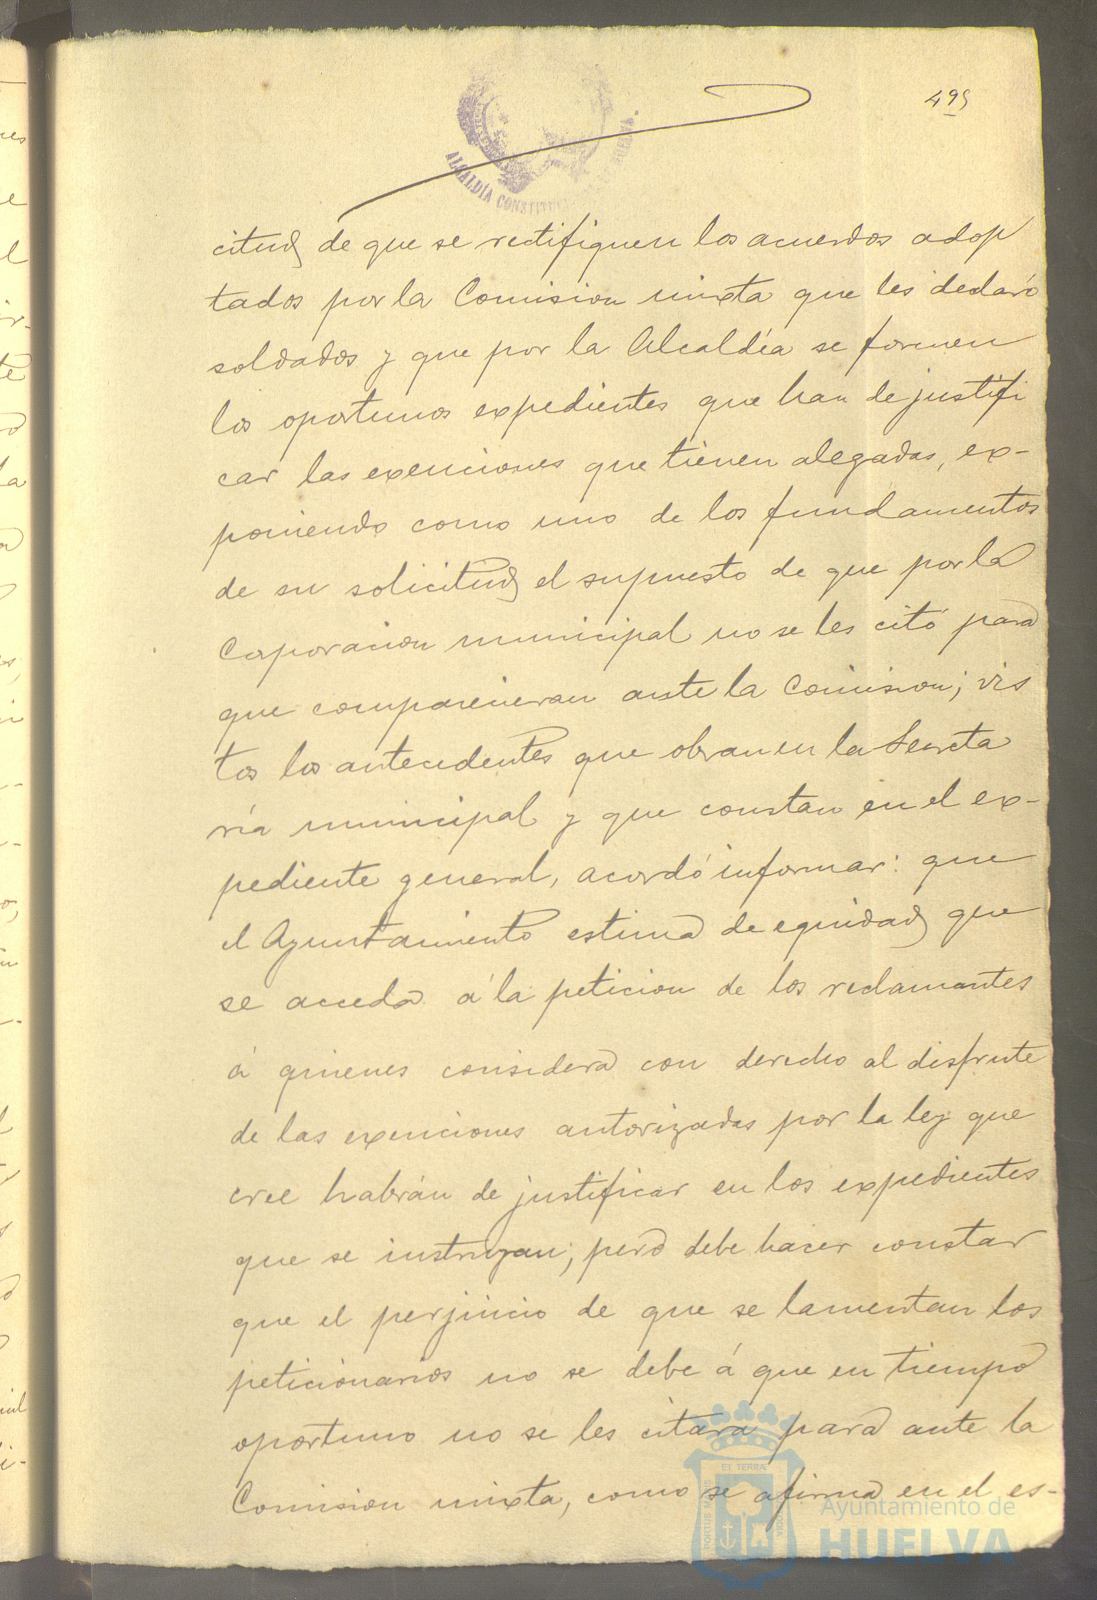 495
ALCALDÍA CONSTITU HUELVA.
citud de que se rectifiquen los acuerdos adop
tados por la Comision mixta que les declaró
soldados y que por la Alcaldía se formen
los oportunos expedientes que han de justifi
car las exenciones que tienen alegadas, ex-
poniendo como uno de los fundamentos
de su solicitud el supuesto de que por la
Corporacion municipal no se les citó para
que comparecieran ante la Comision; vis
tos los antecedentes que obran en la Secreta
ría municipal y que constan en el ex-
pediente general, acordó informar: que
el Ayuntamiento estima de equidad que
se acceda á la peticion de los reclamantes
á quienes considera con derecho al disfrute
de las exenciones autorizadas por la ley que
cree habrán de justificar en los expedientes
que se instruyan; pero debe hacer constar
que el perjuicio de que se lamentan los
peticionarios no se debe á que en tiempo
oportuno no se les citara para ante la
Comision mixta, como se afirma en el es-
Ayuntamiento de
HUELVA